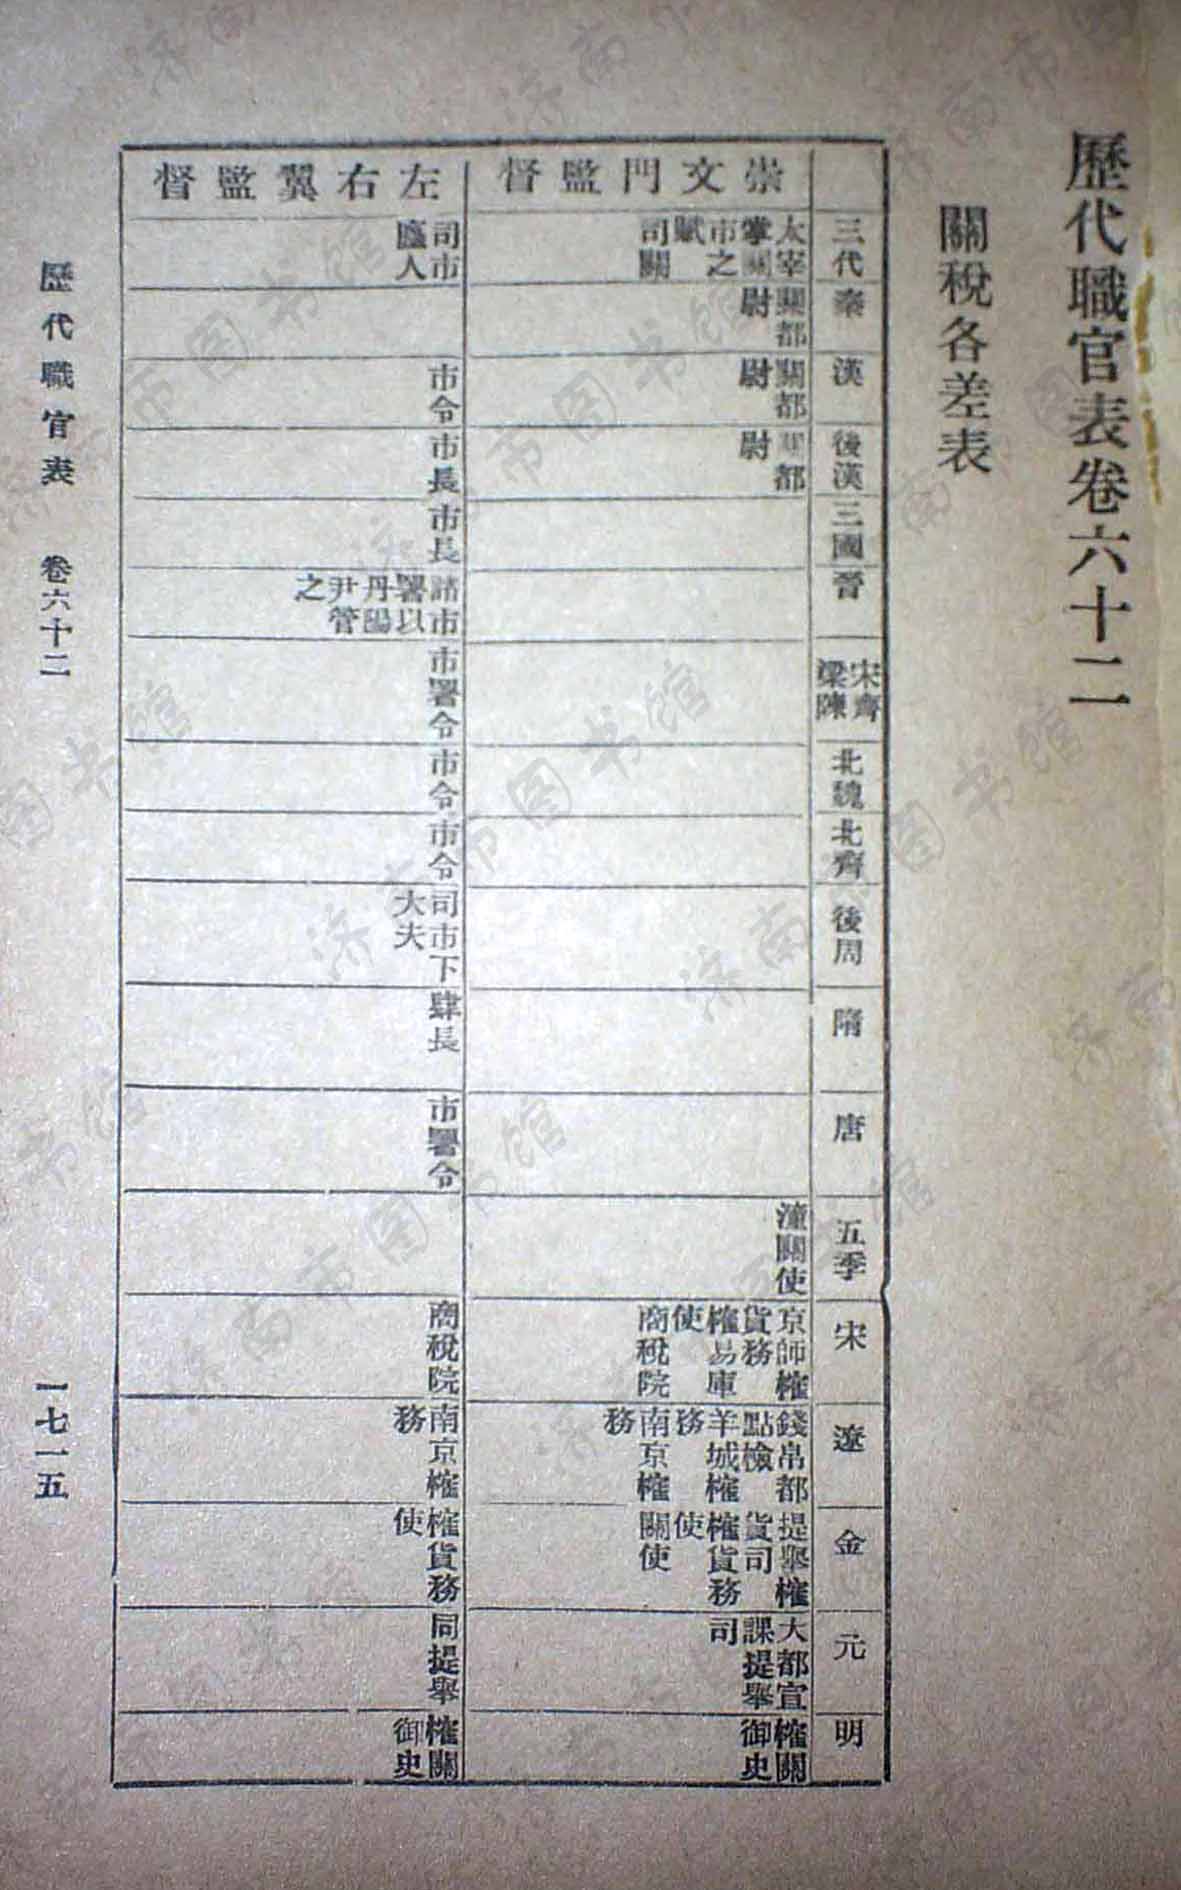 歷代職官表卷六十二
關稅各差表
三代
秦
漢
後漢
三國
晉
宋齊
梁陳
北魏
北齊
後周
隋
唐
五季
宋
遼
金
元
明
崇文門監督
太宰
掌關
市之
賦
司關
關都
尉
關都
尉
關都
尉
潼關使
京師榷
貨務
榷易庫
使
商稅院
錢帛都
點檢
羊城榷
務
南京榷
務
提舉榷
貨司
榷貨務
使
關使
大都宣
課提舉
司
榷關
御史
左右翼監督
司市
廛人
市令
市長
市長
諸市
署以
丹陽
尹管
之
市署令
市令
市令
司市下
大夫
肆長
市署令
商稅院
南京榷
務
榷貨務
使
同提舉
榷關
御史
歷代職官表 卷六十二
一七一五
济南市图书馆